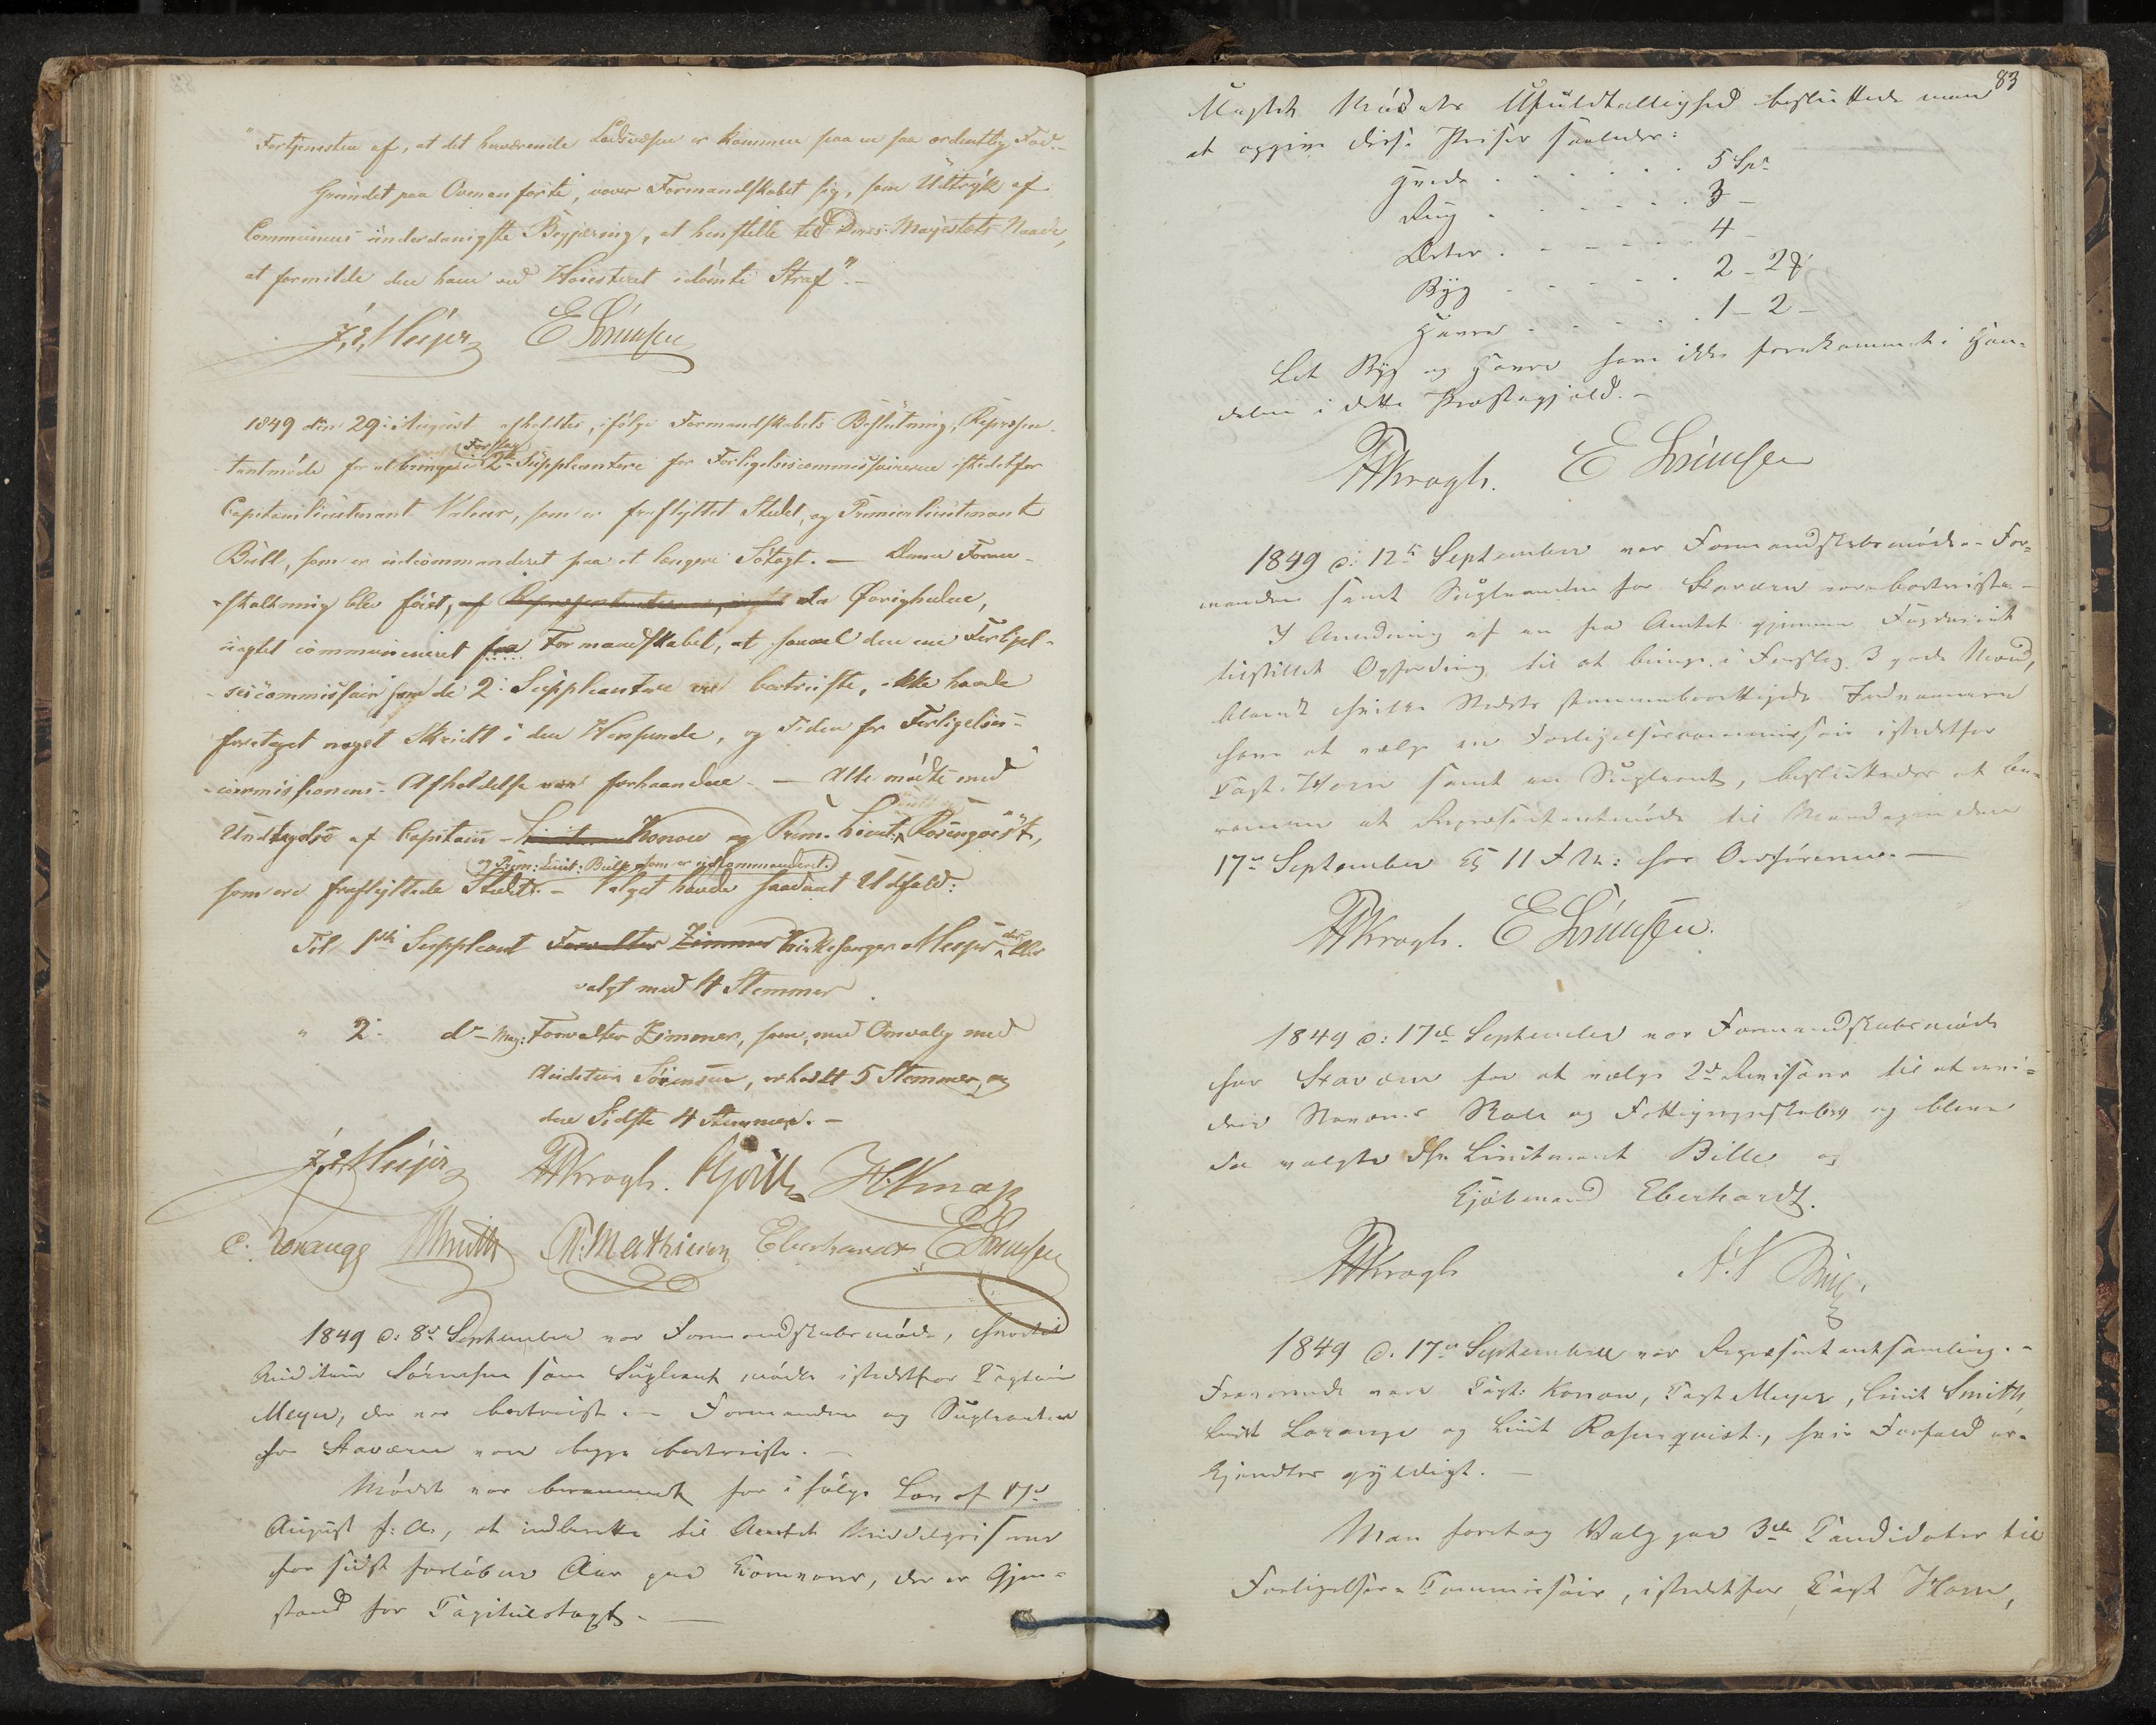 "Fortjenesten af, at det herværende Lodsvæsen er kommen paa en saa ordentlig Fod.-
Grundet paa Ovenanførte, vover Formandskabet sig, som Udtryk af
Communens underdanigste Begjæring, at henstille til Deres Majestæts Naade,
at formilde den ham ved Høiesteret idømte Straf".-
Meyer E Sørensen
1849 den 29: August afholdtes, ifølge Formandskabets Beslutning, Repræsen-
tantmøde for at bringe i Forslag 2de Suppleantere for Forligelsescommissairerne istedetfor
Capitainlieutenant Valeur, som er fraflyttet Stedet, og Premierlieutenant
Büll, som er udcommanderet paa et længere Søtogt. — Denne Foran-
staltning blev føiet, af Repræsentanterne, da Øvrigheden,
uagtet communiceret fra Formandskabet, at saavel den ene Forligel-
sescommissair som de 2: Suppleantere var bortreiste, ikke havde
foretaget noget Skridt i den Henseende, og Tiden for Forligelses-
commissionens Afholdelse var forhaanden. — Alle mødte med
Undtagelse af Capitain Konow og Prem. Lieut: Rosenqvist,
og Prem: Lieut: Bille som er udkommanderet.
som ere fraflyttede Stedet. - Valget havde saadant Udfald:
Til 1ste Suppleant Forvalter Zimmer Kirkesanger Meyer der blev
valgt med 4 Stemmer
" 2: do - Mag: Forvalter Zimmer, som, ved Omvalg med
Auditeur Sørensen, erholdt 5 Stemmer, og
den Sidste 4 Stemmer. -
Meyer Krogh.
C. Lorange Smith N. Mathiesen Eberhardt E Sørensen
1849 d: 8de September var Formandskabsmøde, hvortil
Auditeur Sørensen som Supleant mødte istedetfor Capitain
Meyer, der var bortreist — Formanden og Supleanten
for Staværn vare begge bortreiste. —
Mødet var berammet for i følge Lov af 17de
August f: A:, at indberette til Amtet Middelpriserne
for sidst forløbne Aar paa Kornvarer, der er Gjen-
stand for Capitelstaxt. —
83
Uagtet Mødets Ufuldtallighed besluttede man
at opgive disse Priser saaledes:
Hvede . . . . . . 5 Spd
Rug . . . . . . 3 -
Erter . . . . . . 4 -
Byg . . . . . . 2 - 2
Havre . . . . . . 1 - 2 -
Let Byg og Havre som ikke forekommet i Han-
delen i dette Præstegjeld. -
Krogh. E Sørensen
1849 d: 12te September var Formandskabsmøde - For-
manden samt Supleanten for Staværn vare bortreiste -
I Anledning af en fra Amtet gjennem Fogderiet
tilstillet Opfordring til at bringe i Forslag 3 gode Mænd,
blandt hvilke Stedets stemmeberettigede Indvaanere
have at vælge en Forligelsescommissair istedetfor
Capt. Horn samt en Supleant, besluttedes at be-
ramme et Repræsentantmøde til Mandagen den
17de September Kl 11 F.M: hos Ordføreren. —
Krogh. E Sørensen.
1849 d: 17de September var Formandskabsmøde
for Staværn for at vælge 2de Revisorer til at revi-
dere Staværns Skole og Fattigregnskaber og bleve
da valgte Hr. Lieutenant Bille og
Kjøbmand Eberhardt.
Krogh
1849 d. 17de September var Repræsentantsamling. -
Fraværende vare Capt: Konow, Capt Meyer, Lieut Smith,
Lieut Lorange og Lieut Rosenqvist, hvis Forfald er-
kjendtes gyldigt. —
Man foretog Valg paa 3de Candidater til
Forligelses-Commissair, istedetfor Capt Horn,